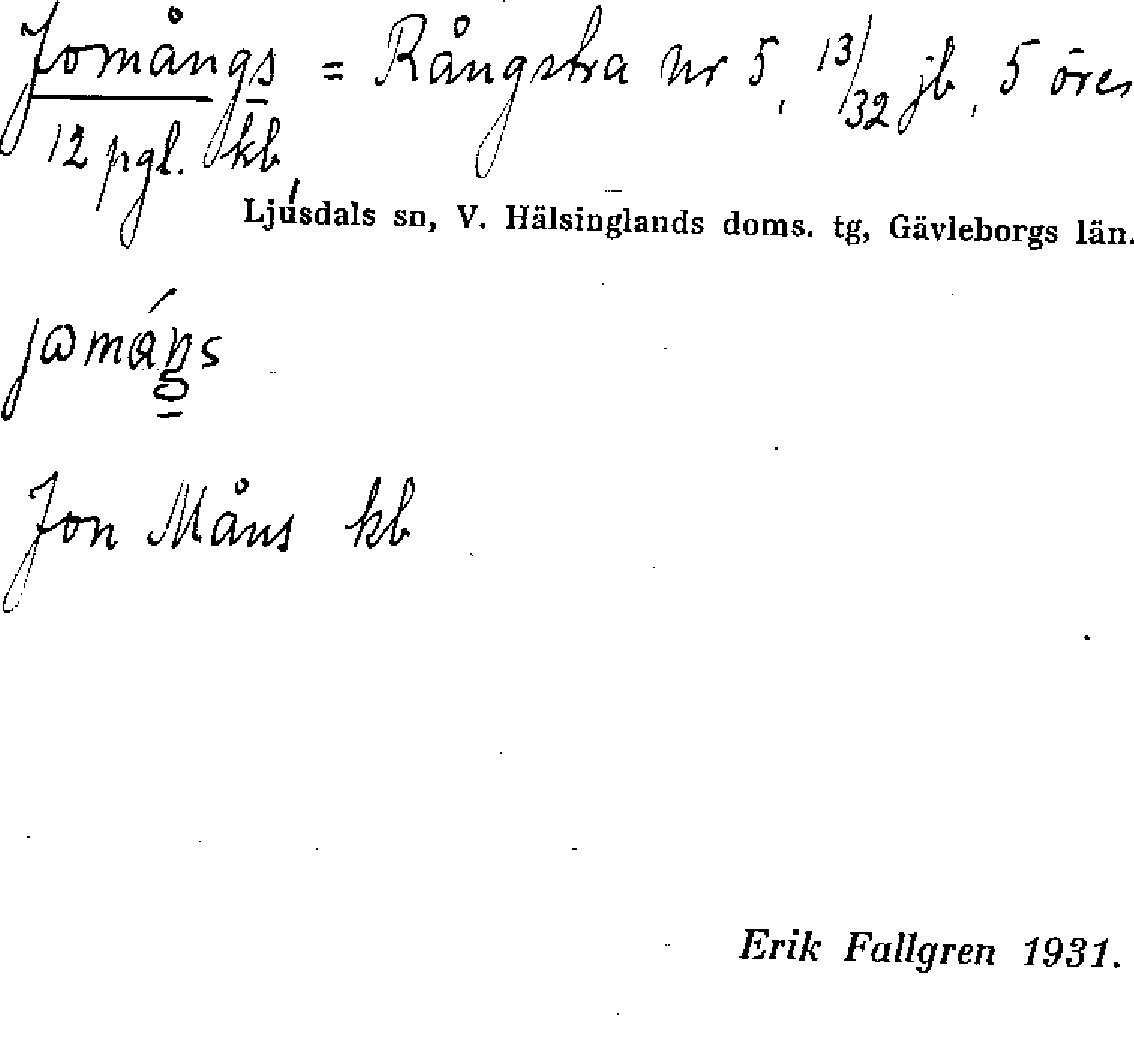 Jomångs = Rångstra nr 5, 13/32 jb, 5 öres
12 pgl. kb,
Ljusdals sn, V. Hälsinglands doms. tg, Gävleborgs län.
Jon Måns kb
Erik Fallgren 1931.